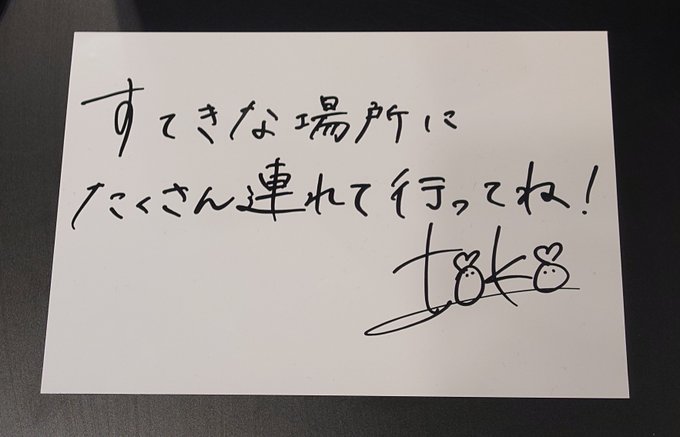 すてきな場所に
たくさん連れて行ってね!
toko